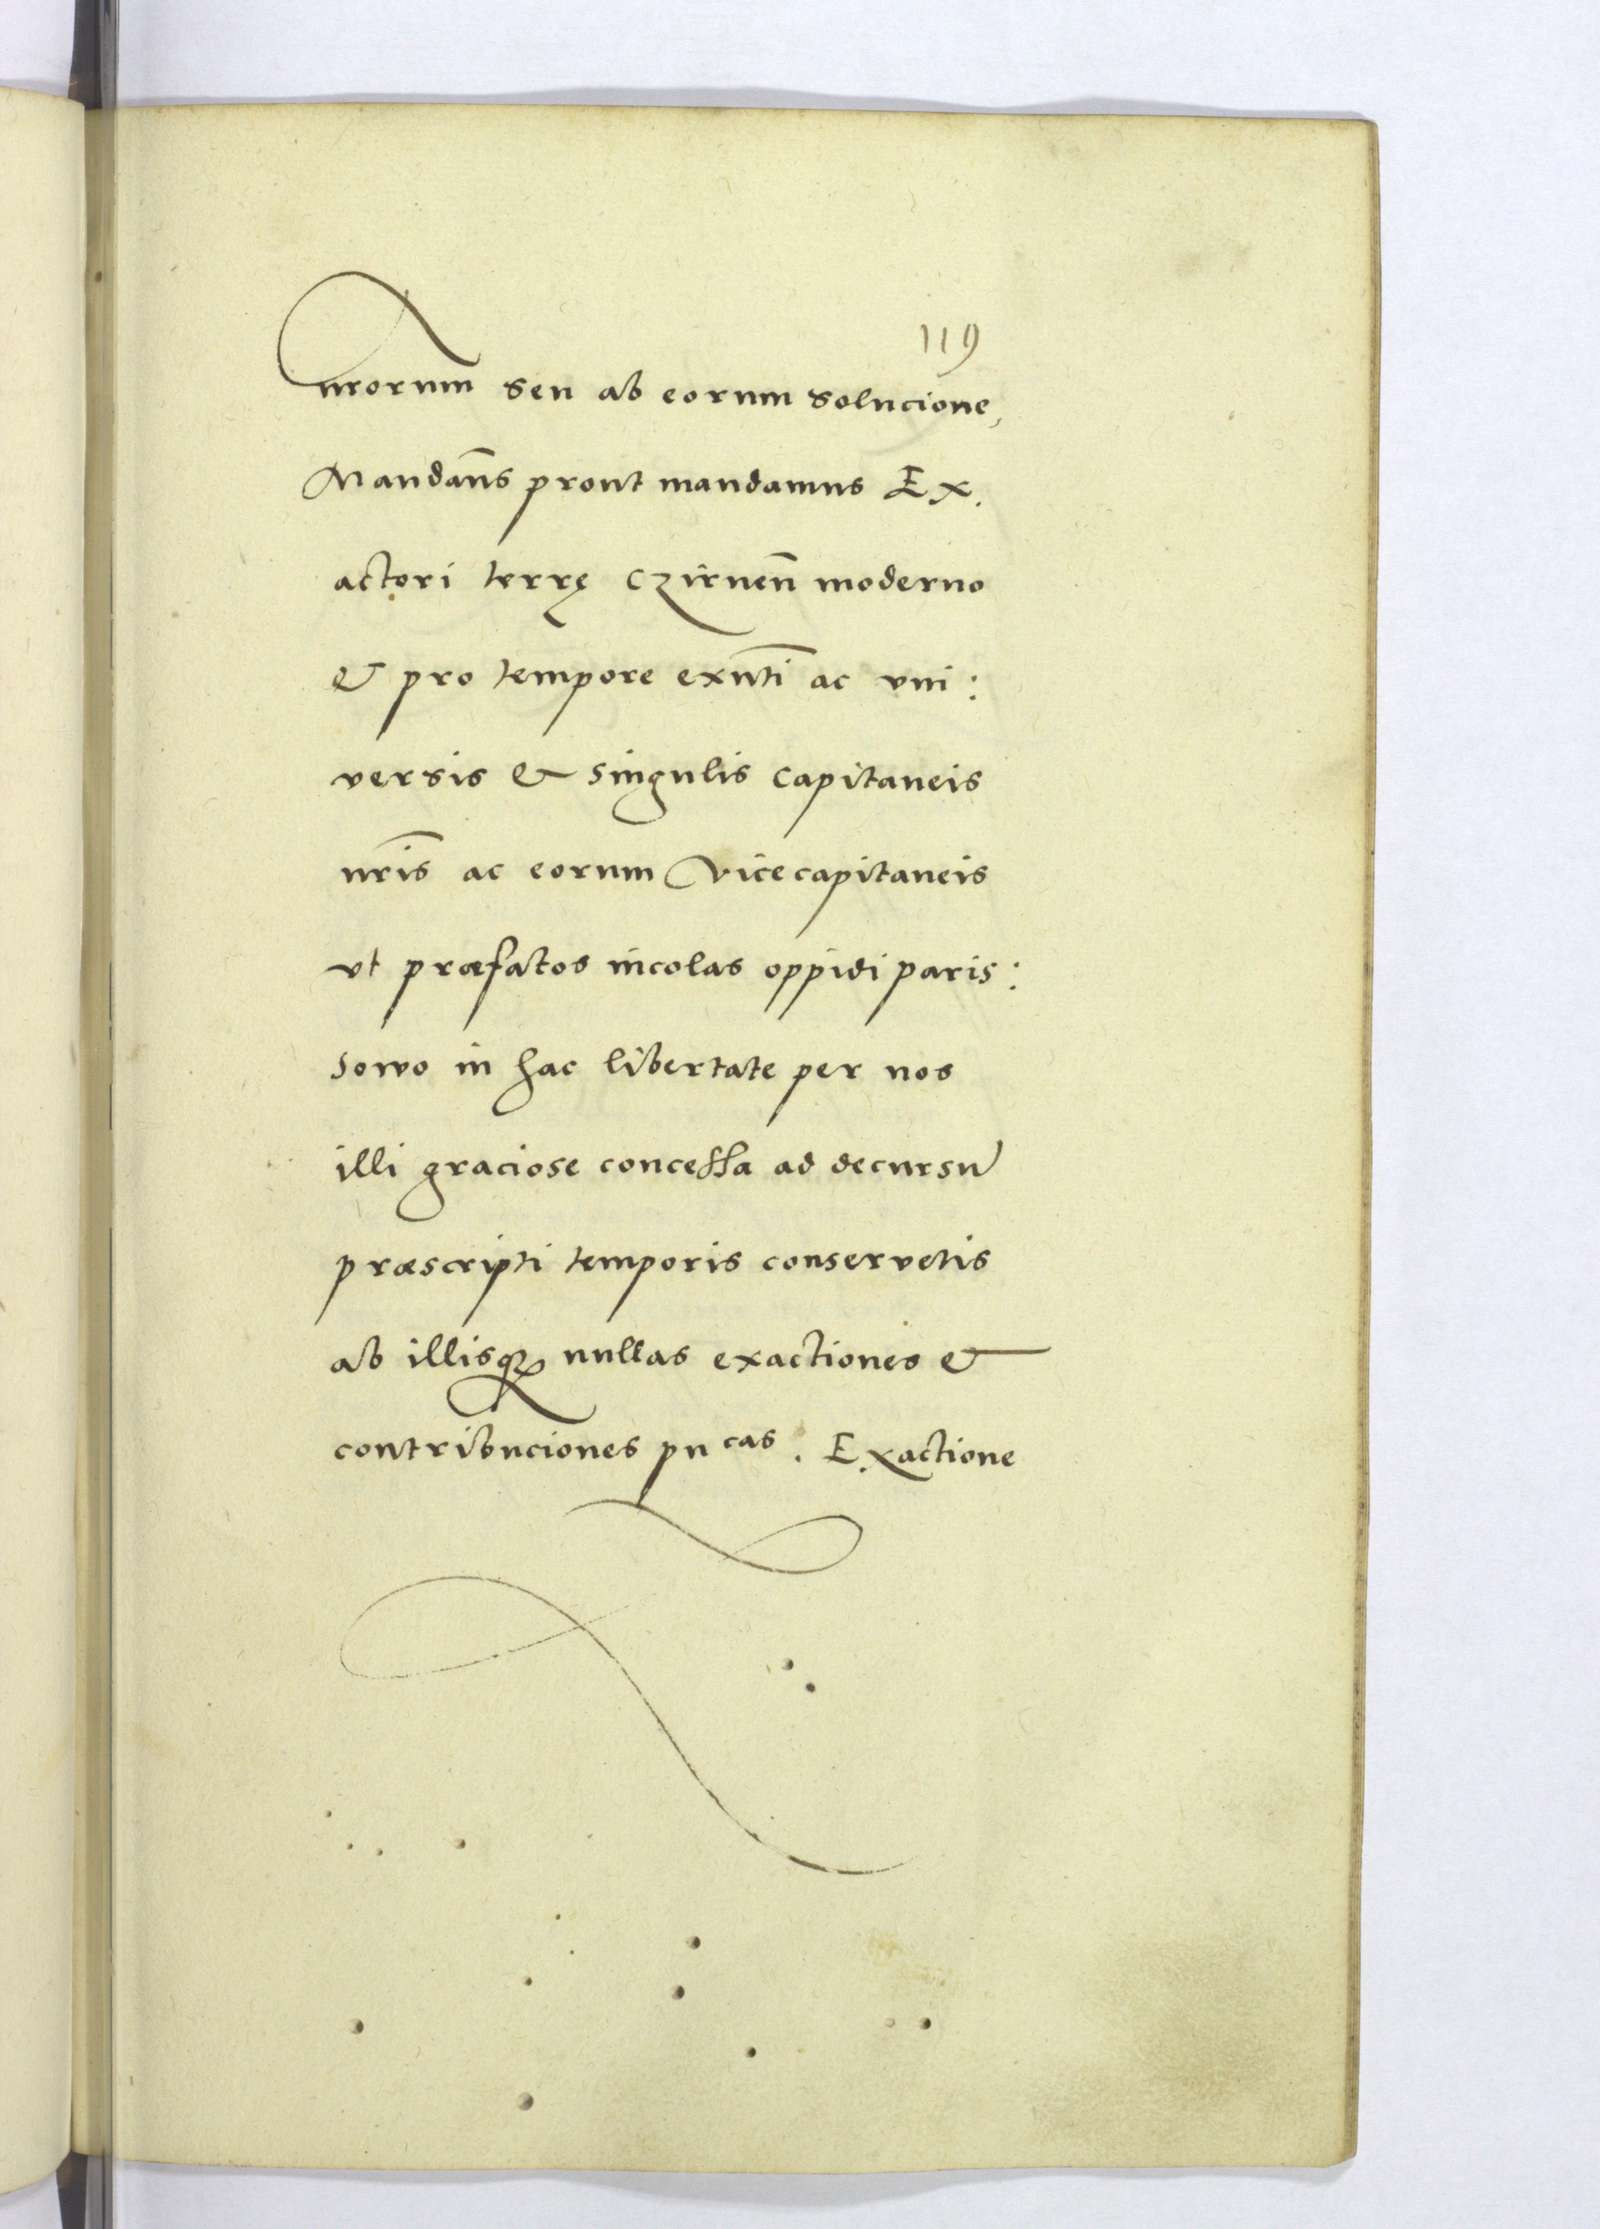 119
nrorum seu ab eorum solucione,
Mandan̄s prout mandamus Ex.
actori terrę Czirnen̄ moderno
& pro tempore exn̄ti ac vni:
versis & singulis capitaneis
nr̄is ac eorum vicecapitaneis
vt præfatos incolas oppidi paris:
sowo in hac libertate per nos
illi graciose concessa ad decursū
præscripti temporis conservetis
ab illisqꝫ nullas exactiones &
contribuciones pucas. Exactione